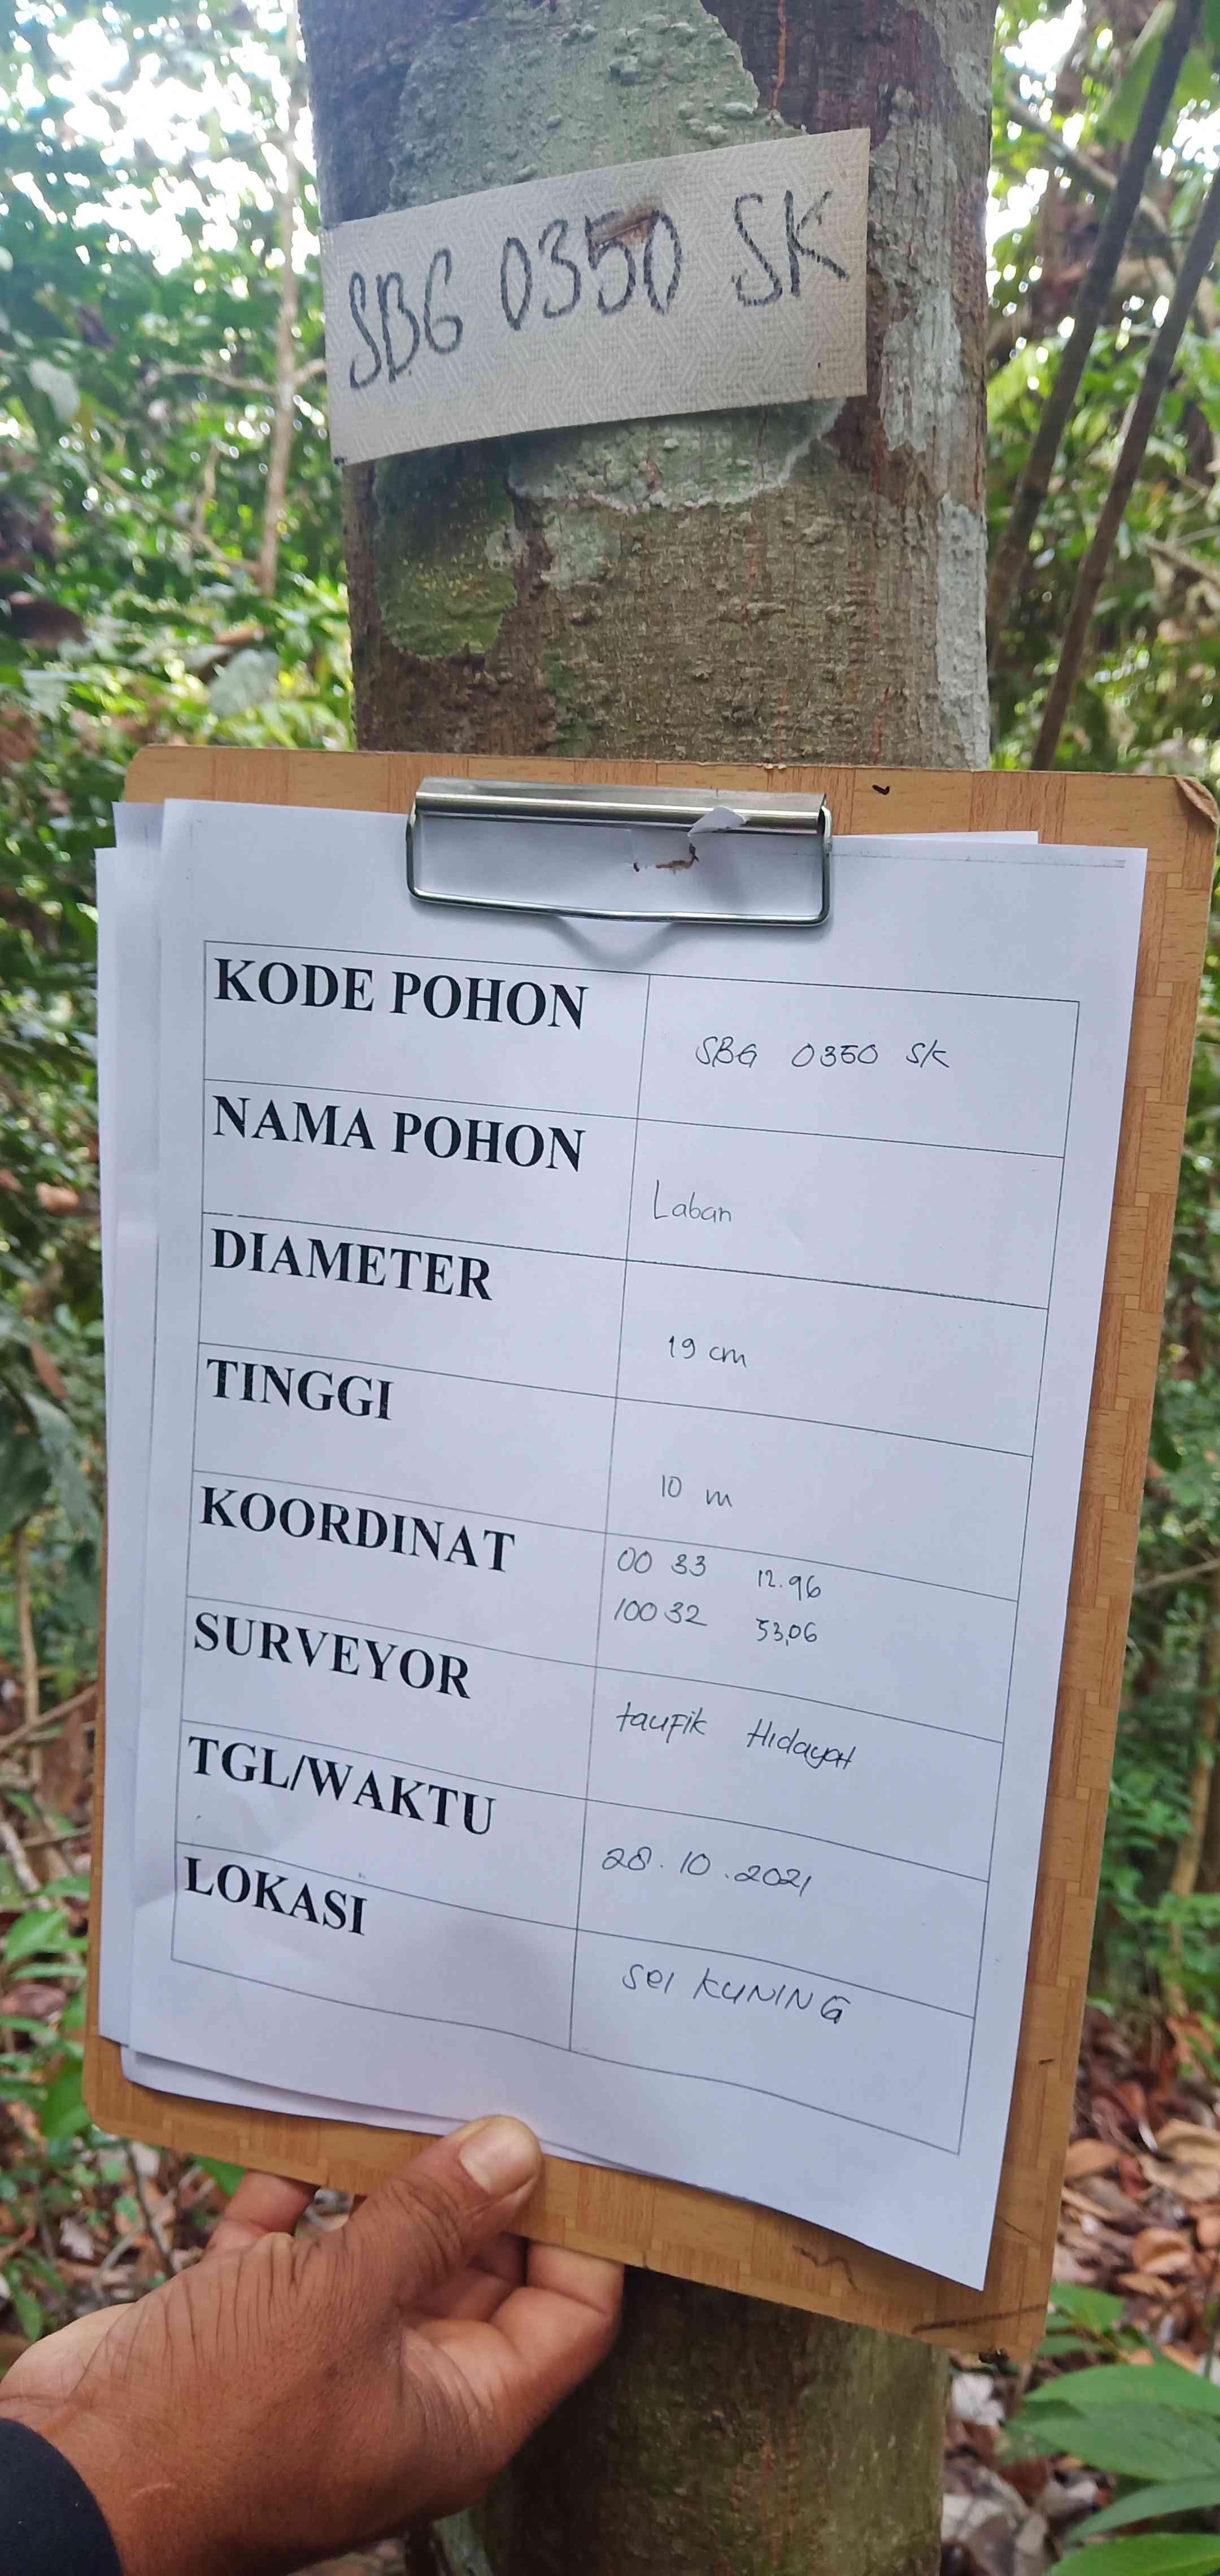 SBG 0350 SK
KODE POHON
SBG 0350 SK
NAMA POHON
Laban
DIAMETER
19 cm
TINGGI
10 m
KOORDINAT
00 33 12.96
100 32 53,06
SURVEYOR
taufik Hidayat
TGL/WAKTU
28.10.2021
LOKASI
Sei KUNING